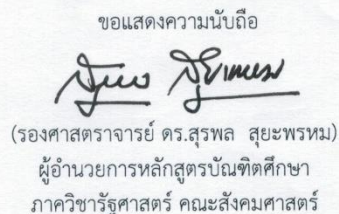 ขอแสดงความนับถือ
(รองศาสตราจารย์ ดร.สุรพล สุยะพรหม)
ผู้อำนวยการหลักสูตรบัณฑิตศึกษา
ภาควิชารัฐศาสตร์ คณะสังคมศาสตร์